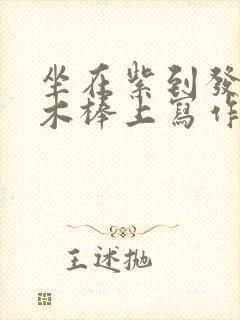 坐在紫到發
木棒上寫作
王述拋